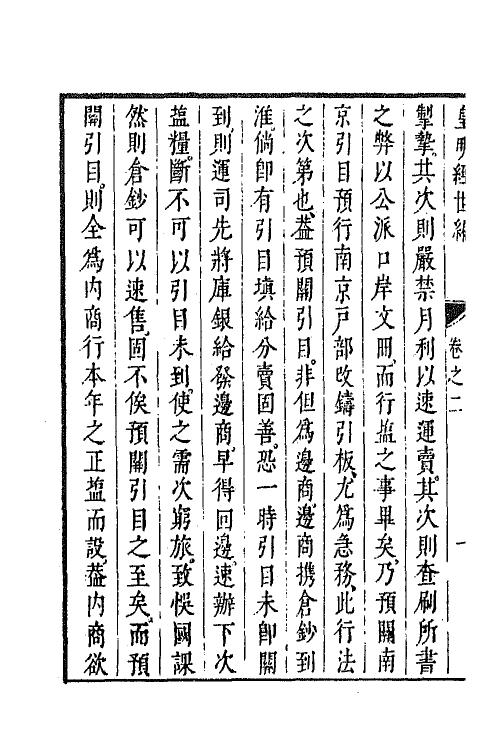 皇明經世編
卷之二
一
掣摯其次則嚴禁月利以速運賣其次則查刷所書
之弊以公派口岸文冊而行塩之事畢矣乃預關南
京引目預行南京戸部改鑄引板尤為急務此行法
之次第也葢預關引目非但為邊商邊商携倉鈔到
淮倘即有引目填給分賣固善恐一時引目未即關
到則運司先將庫銀給發邊商早得回邊速辦下次
塩糧斷不可以引目未到使之需次窮旅致悞國課
然則倉鈔可以速售固不俟預關引目之至矣而預
關引目則全為内商行本年之正塩而設葢内商欲